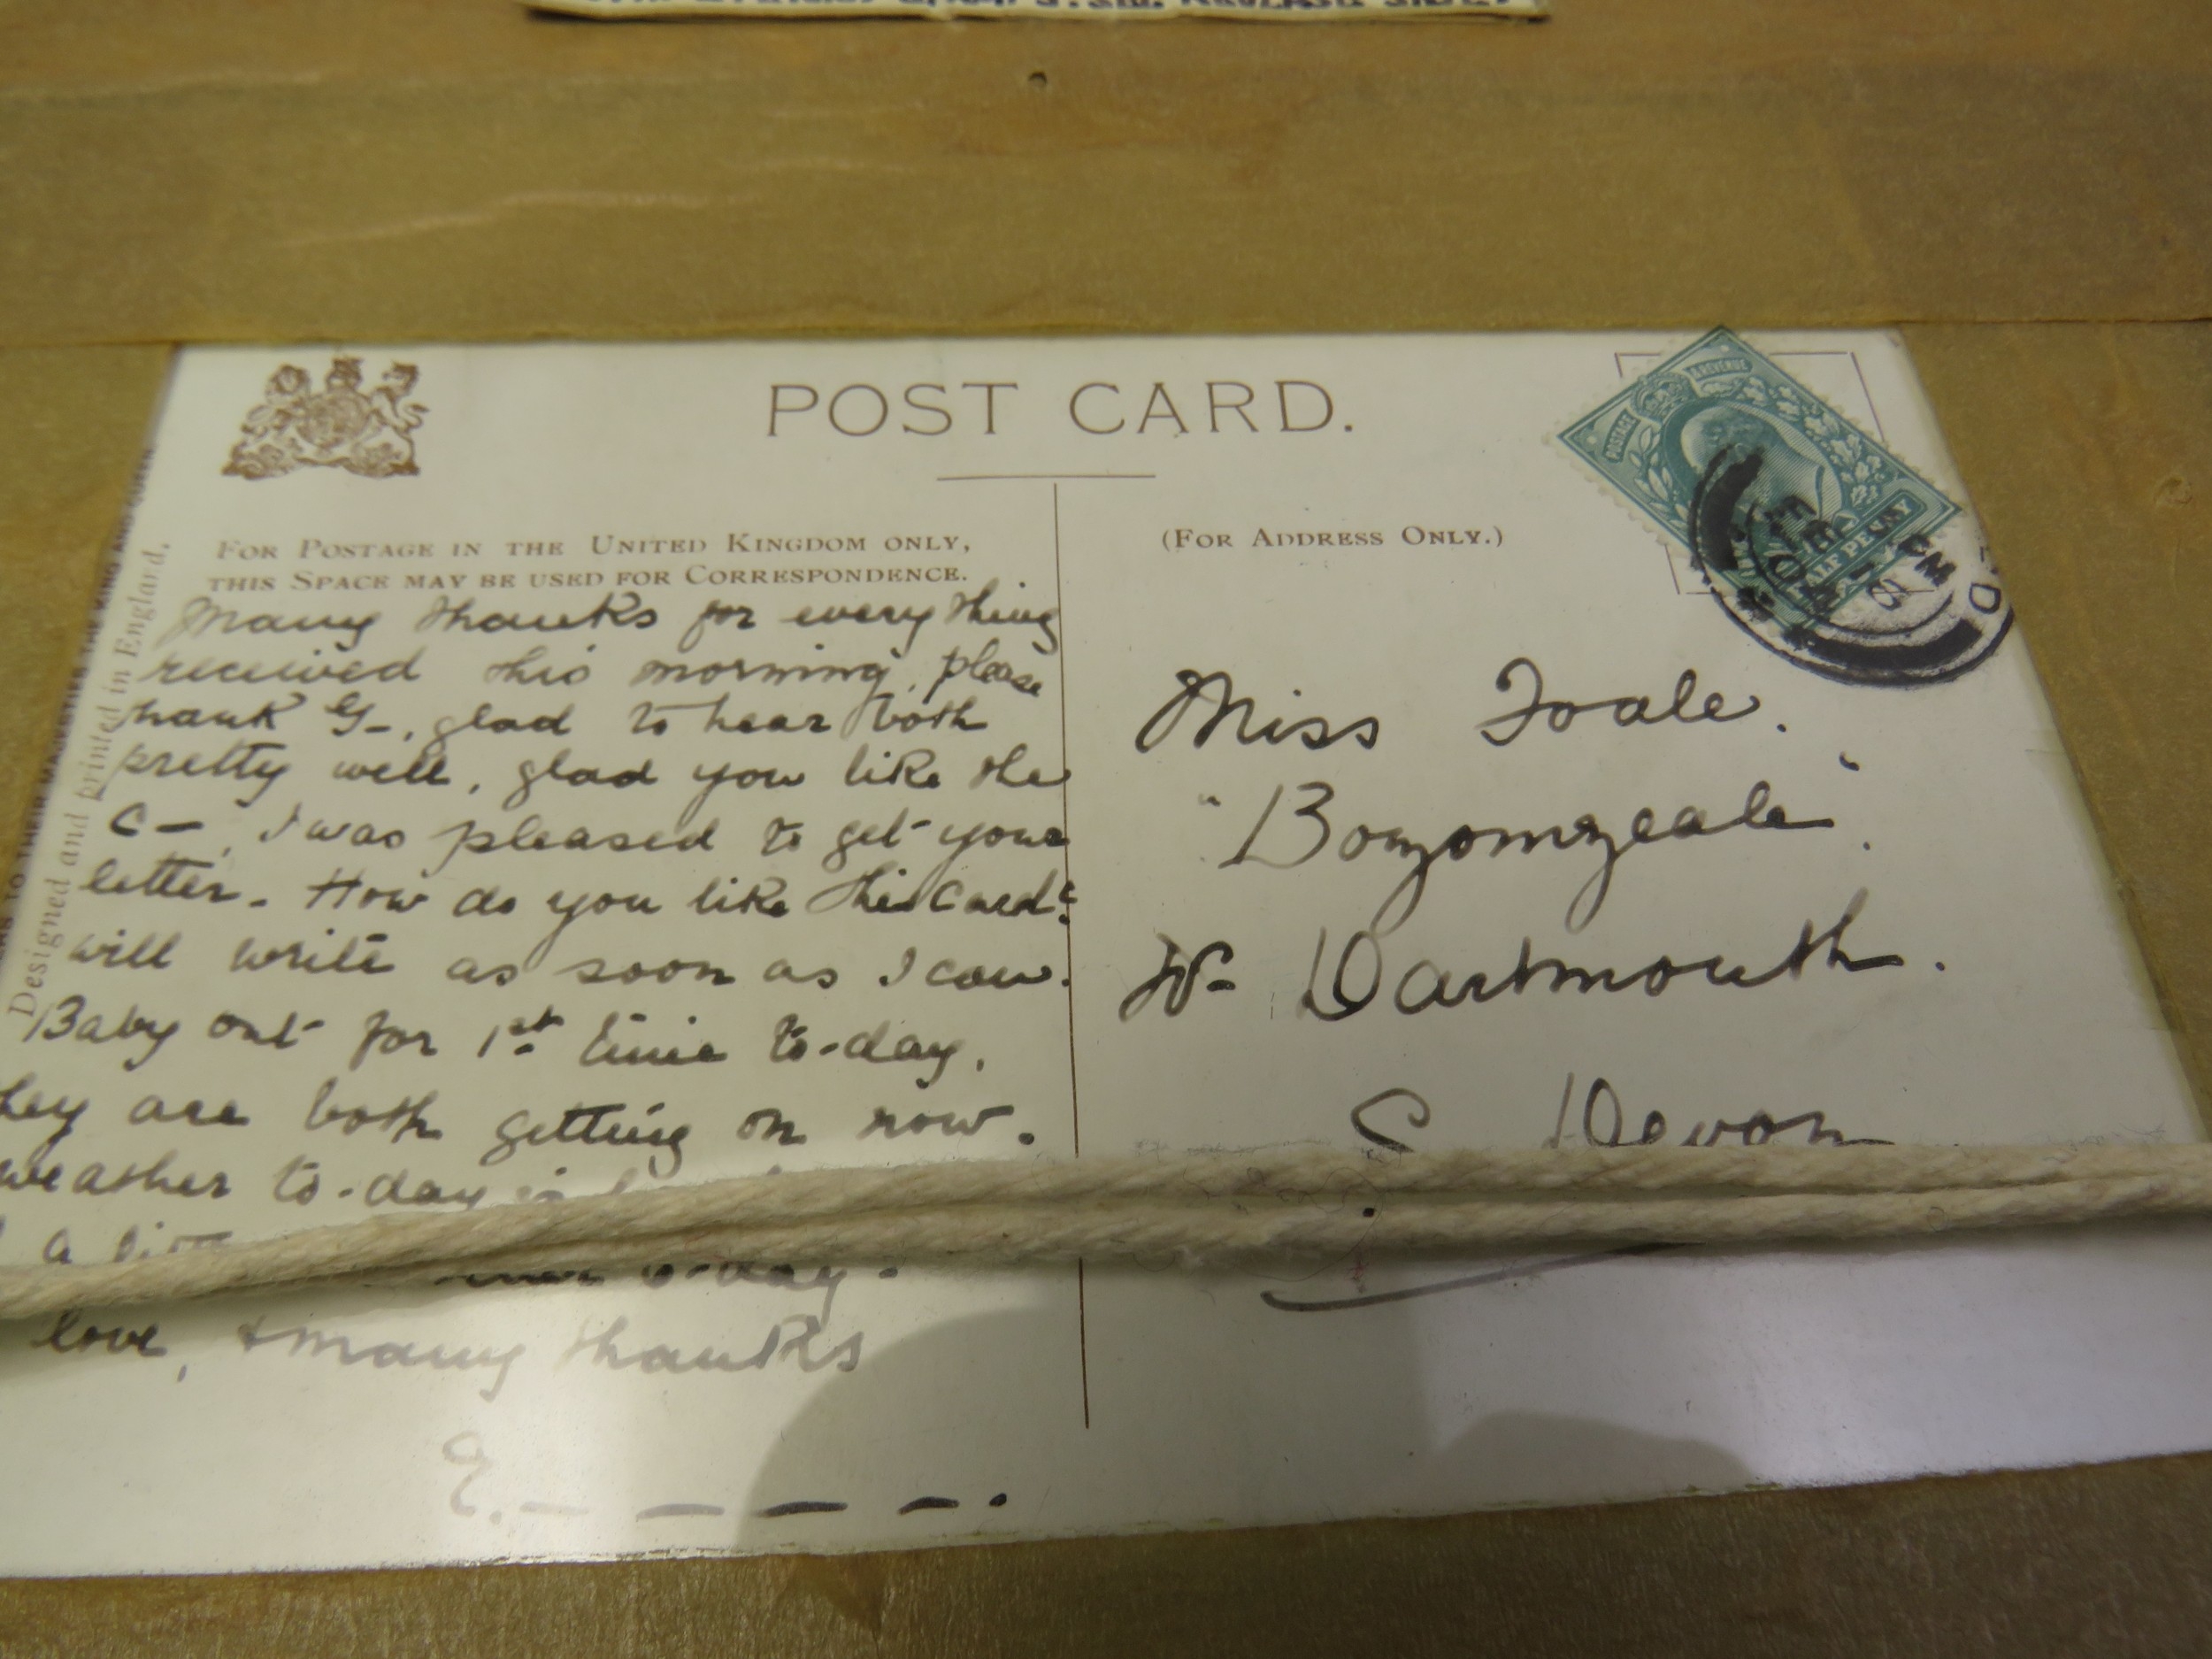 POST CARD.
FOR POSTAGE IN THE UNITED KINGDOM ONLY,
THIS SPACE MAY BE USED FOR CORRESPONDENCE.
(FOR ADDRESS ONLY.)
Designed and printed in England.
POSTAGE & REVENUE
HALF PENNY
Many thanks for everything
received this morning, please
thank G-, glad to hear both
pretty well, glad you like the
C-, I was pleased to get your
letter. How do you like this Card?
will write as soon as I can.
Baby out for 1st time to-day,
they are both getting on now.
weather to-day is
a
to-day.
love, & many thanks
E.- - - -.
Miss Foale.
"Bozomzeale".
Nr Dartmouth.
S. Devon